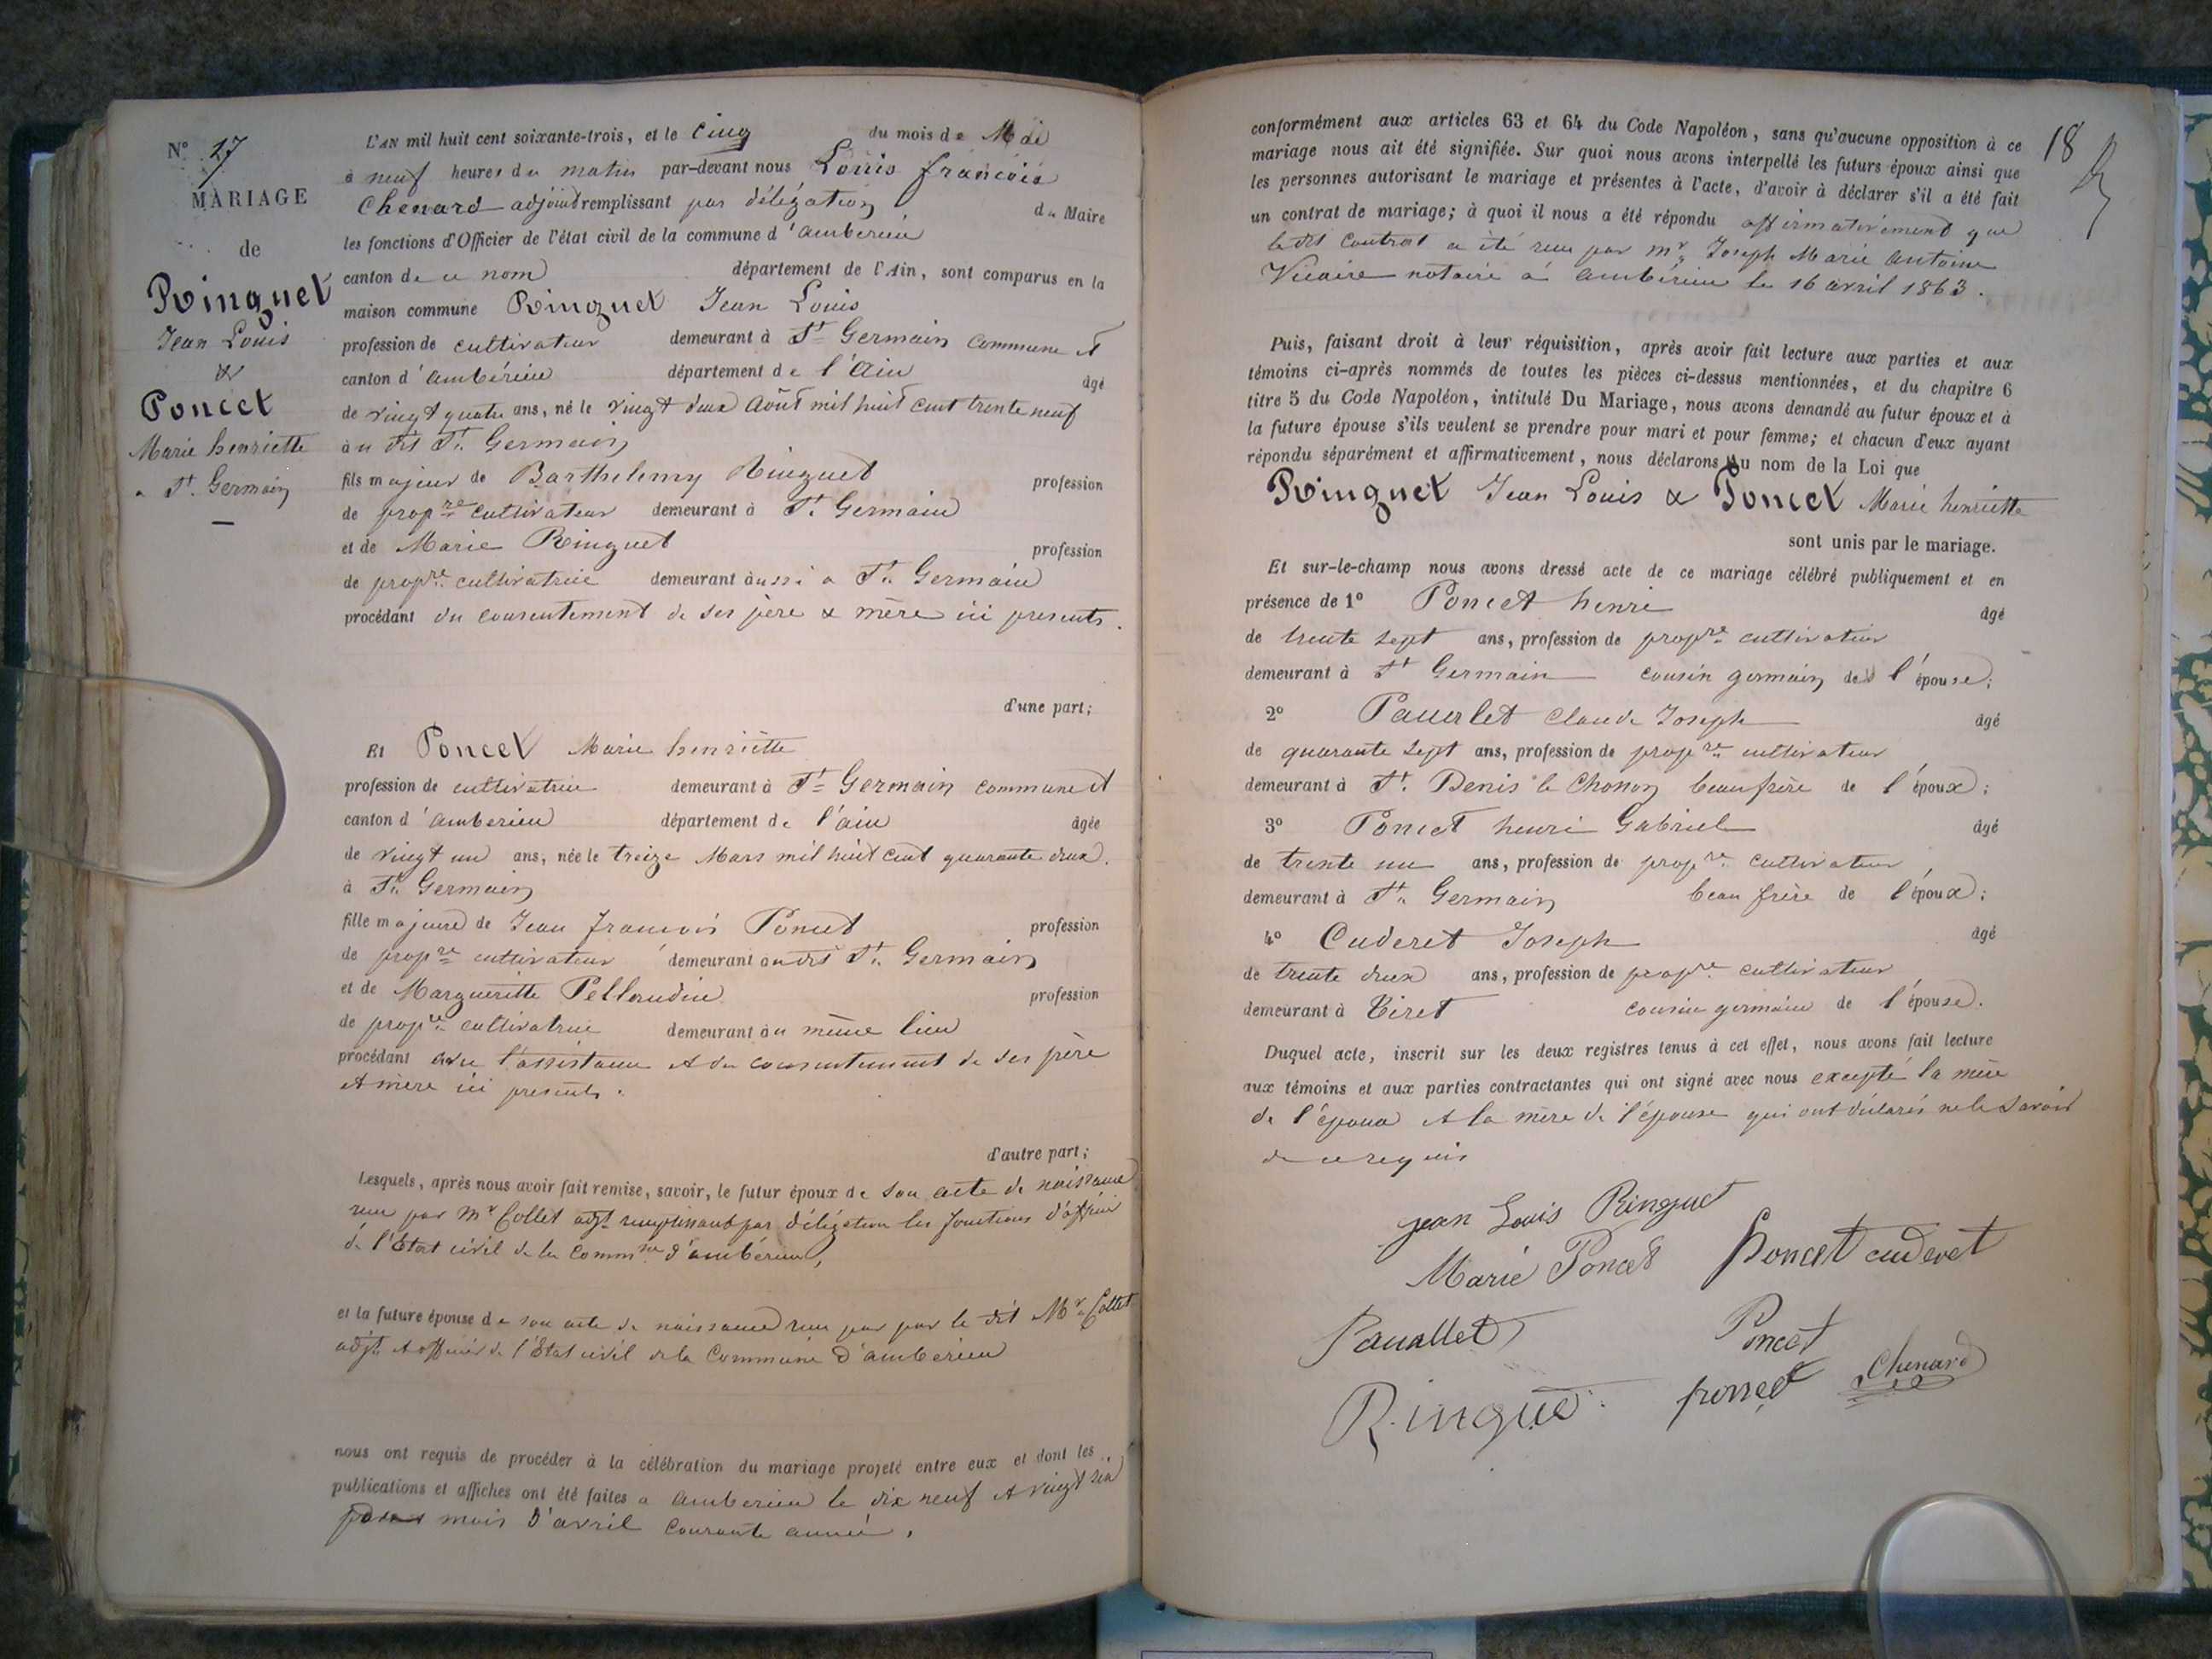 N° 17
MARIAGE
de
Ringuet
Jean Louis
&
Poncet
Marie henriette
a St. Germain
L'AN mil huit cent soixante-trois, et le cinq du mois de Mai
à neuf heures du matin par-devant nous Louis françois
Chenard adjoint remplissant par délégation du Maire
les fonctions d'Officier de l'état civil de la commune d'ambérieu
canton de ce nom département de l'Ain, sont comparus en la
maison commune Ringuet Jean Louis
profession de cultivateur demeurant à St Germain commune et
canton d'ambérieu département de l'Ain âgé
de vingt quatre ans, né le vingt deux Août mil huit cent trente neuf
au dit St. Germain
fils majeur de Barthelemy Ringuet profession
de propre cultivateur demeurant à St. Germain
et de Marie Ringuet profession
de propre cultivatrice demeurant aussi a St. Germain
procédant du consentement de ses père & mère ici presents.
d'une part;
Et Poncet Marie henriette
profession de cultivatrice demeurant à St Germain commune et
canton d'amberieu département de l'ain âgée
de vingt un ans, née le treize Mars mil huit cent quarante deux.
à St. Germain
fille majeure de Jean françois Poncet profession
de propre cultivateur demeurant au dit St. Germain
et de Margueritte Pellaudin profession
de propre cultivatrice demeurant au même lieu
procédant avec l'assistance et du consentement de ses père
et mère ici presents.
d'autre part;
Lesquels, après nous avoir fait remise, savoir, le futur époux de son acte de naissance
reçu par Mr Collet adjt remplissant par délégation les fonctions d'officier
de l'Etat civil de la Commne d'ambérieu,
et la future épouse de son acte de naissance reçu par par le dit Mr Collet
adjt et officier de l'Etat civil de la Commune d'amberieu
nous ont requis de procéder à la célébration du mariage projeté entre eux et dont les
publications et affiches ont été faites a amberieu le dix neuf et vingt six
mois d'avril courante année.
18
conformément aux articles 63 et 64 du Code Napoléon, sans qu'aucune opposition à ce
mariage nous ait été signifiée. Sur quoi nous avons interpellé les futurs époux ainsi que
les personnes autorisant le mariage et présentes à l'acte, d'avoir à déclarer s'il a été fait
un contrat de mariage; à quoi il nous a été répondu affirmativement que
le dit contrat a été reçu par mr Joseph Marie Antoine
Vicaire notaire à ambérieu le 16 avril 1863.
Puis, faisant droit à leur réquisition, après avoir fait lecture aux parties et aux
témoins ci-après nommés de toutes les pièces ci-dessus mentionnées, et du chapitre 6
titre 5 du Code Napoléon, intitulé Du Mariage, nous avons demandé au futur époux et à
la future épouse s'ils veulent se prendre pour mari et pour femme; et chacun d'eux ayant
répondu séparément et affirmativement, nous déclarons au nom de la Loi que
Ringuet Jean Louis & Poncet Marie henriette
sont unis par le mariage.
Et sur-le-champ nous avons dressé acte de ce mariage célébré publiquement et en
présence de 1° Poncet henri âgé
de trente sept ans, profession de propre cultivateur
demeurant à St Germain cousin germain de l'épouse;
2° Pauerlet Claude Joseph âgé
de quarante sept ans, profession de propre cultivateur
demeurant à St. Denis le Chosson beaufrère de l'époux;
3° Poncet henri Gabriel âgé
de trente un ans, profession de propre cultivateur
demeurant à St. Germain beau frère de l'époux;
4° Cuderet Joseph âgé
de trente deux ans, profession de propre cultivateur
demeurant à Tiret cousin germain de l'épouse.
Duquel acte, inscrit sur les deux registres tenus à cet effet, nous avons fait lecture
aux témoins et aux parties contractantes qui ont signé avec nous excepté la mère
de l'époux et la mère de l'épouse qui ont déclarés ne le savoir
de ce requis
jean Louis Ringuet
Marie Poncet Poncet cuderet
Pauallet Poncet
Ringue ponset Chenard